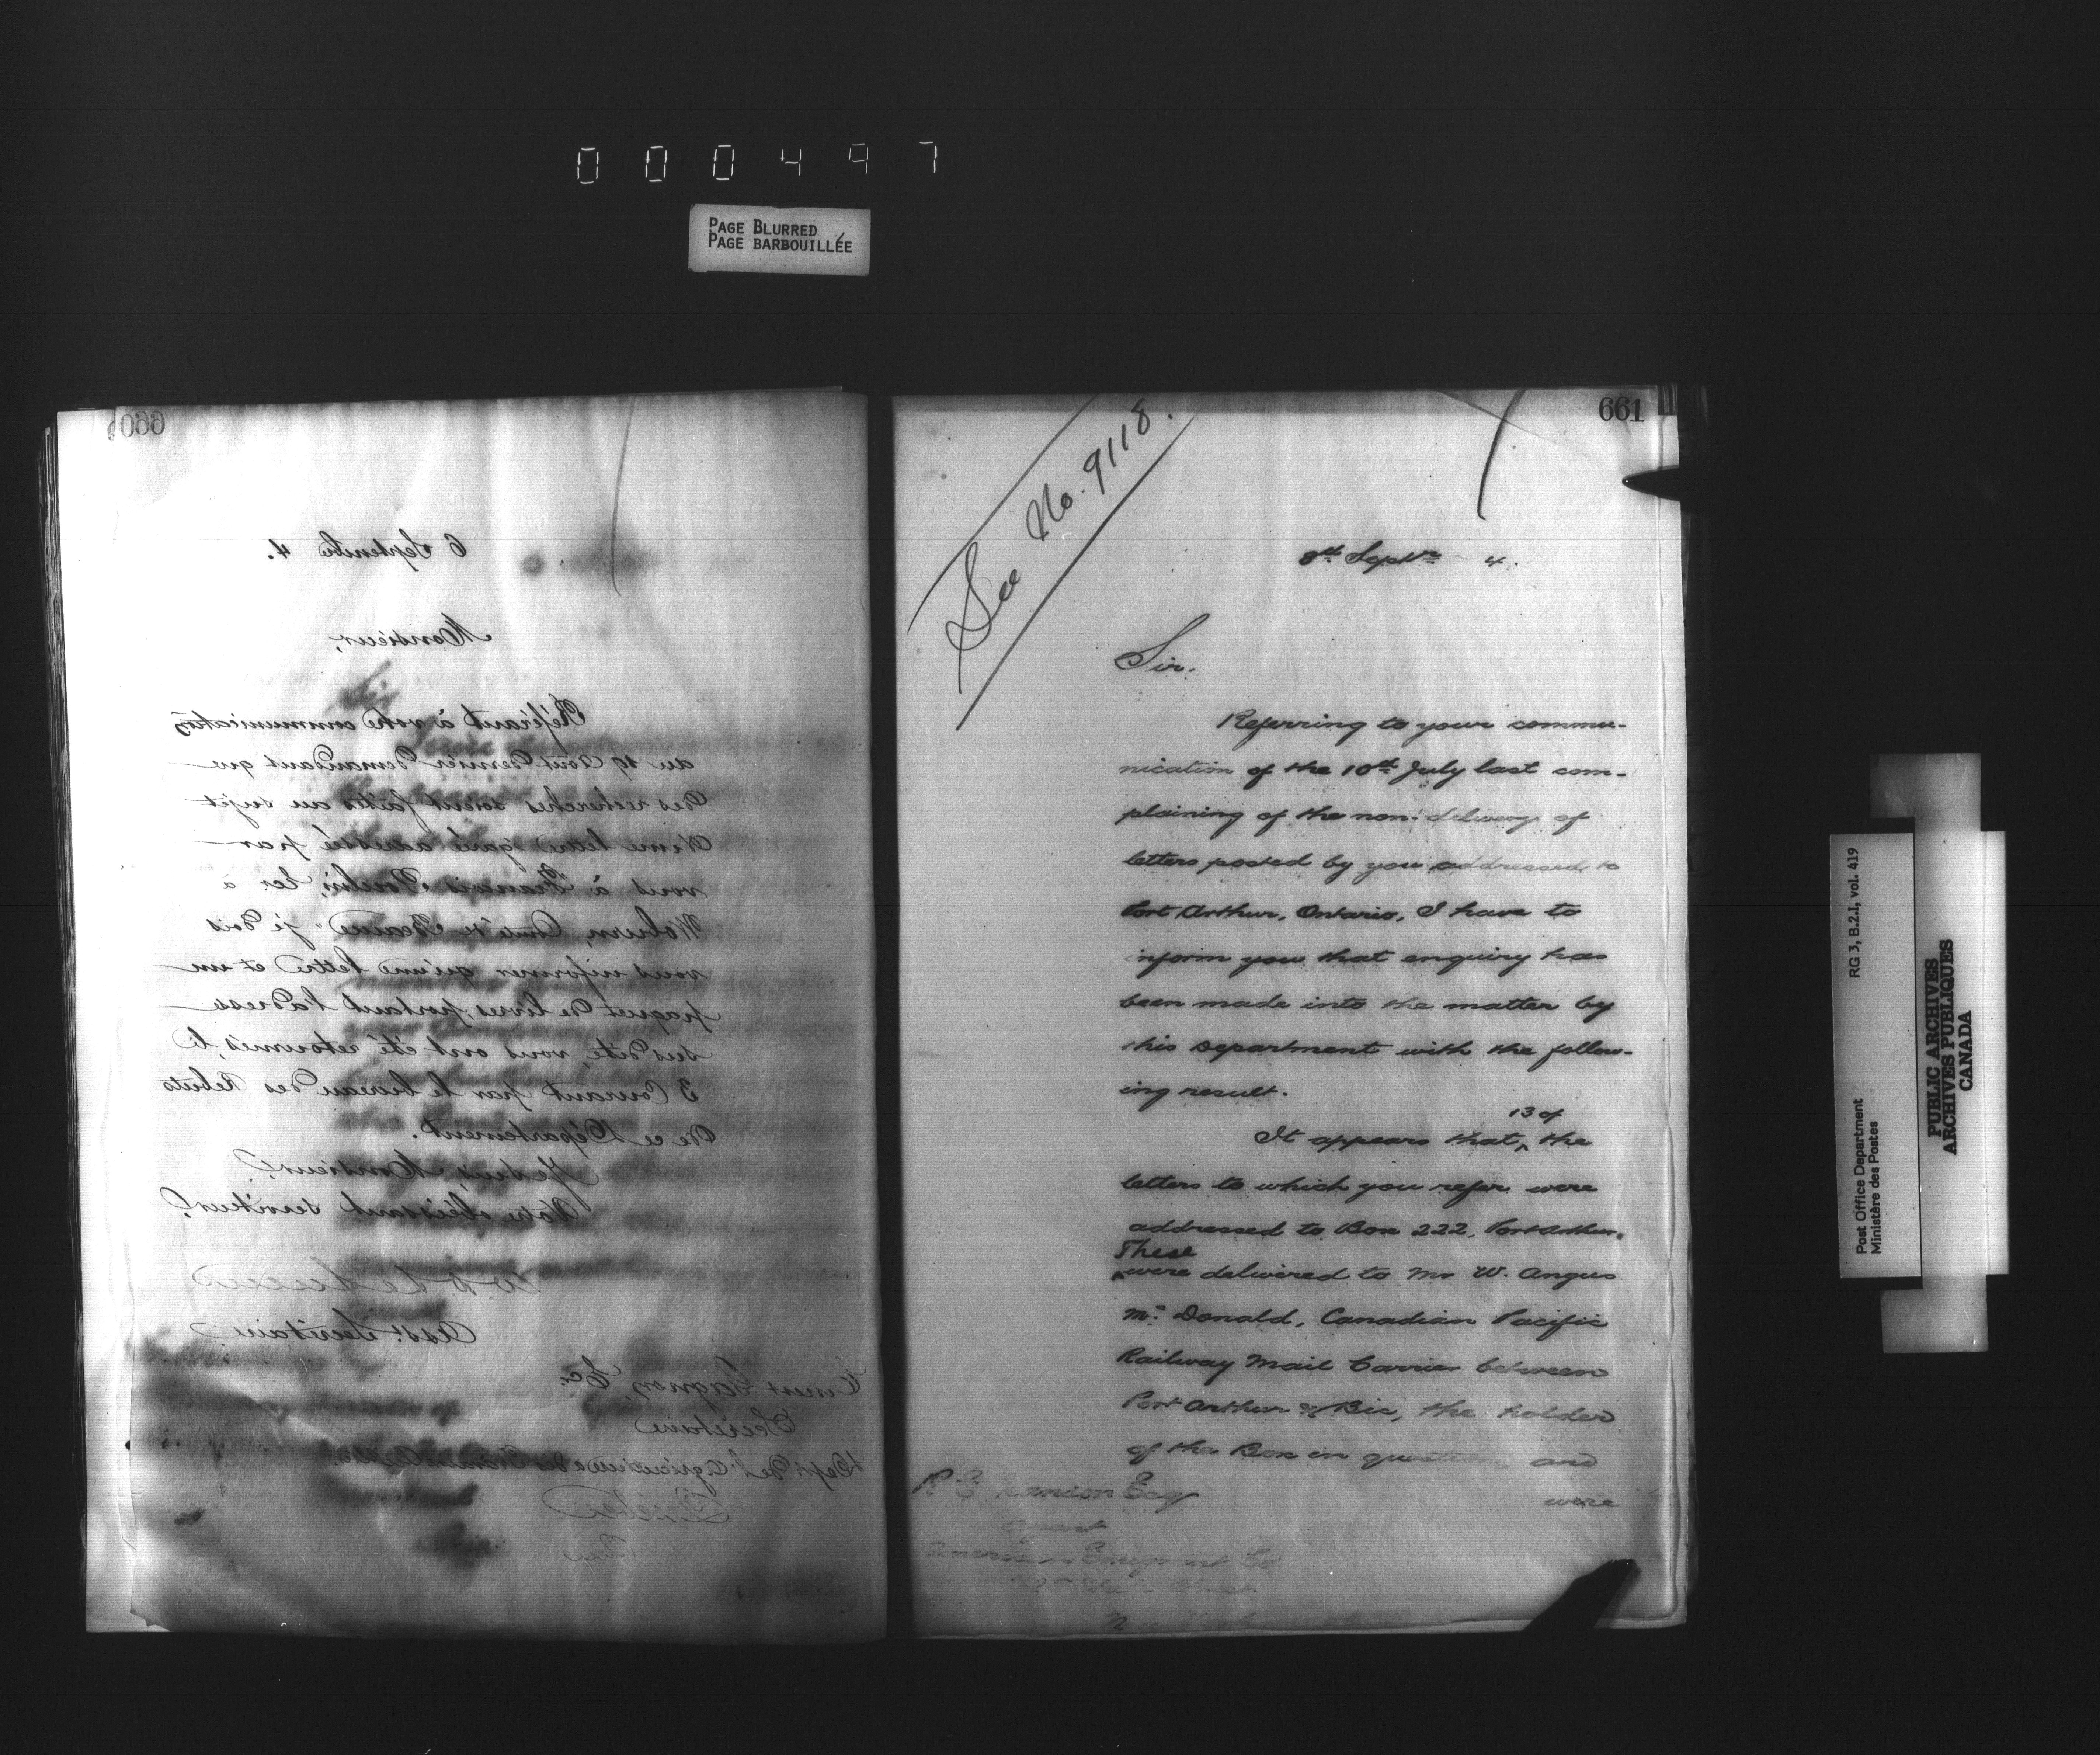 000497
PAGE BLURRED
PAGE BARBOUILLÉE
660
6 Septembre 4.
Monsieur,
Référant à votre communication
du 19 Aout dernier demandant que
des recherches soient faites au sujet
d'une lettre adressée par
vous à François à
Woburn, Comté de Beauce je dois
vous informer qu'une lettre et un
paquet de livres portant l'adresse
sus dite, vous ont été retournés, le
3 Courant par le bureau des Rebuts
de ce Département.
Je suis, Monsieur,
Votre obéissant serviteur,
Asst. Secrétaire
Gagnon, Ec.
Secrétaire
Dept de l'Agriculture
Québec
661
See No. 9118.
8th Septr 4.
Sir.
Referring to your commu-
nication of the 10th July last com-
plaining of the non-delivery of
letters posted by you addressed to
Port Arthur, Ontario, I have to
inform you that enquiry has
been made into the matter by
this Department with the follow-
ing result.
13 of
It appears that ^ the
letters to which you refer were
addressed to Box 222, Port Arthur.
These
^ were delivered to Mr W. Angus
Mc Donald, Canadian Pacific
Railway Mail Carrier between
Port Arthur & Bic, the holder
of the Box in question, and
were
R E Esq
Agent
American Emigrant Co
New York
Post Office Department RG 3, B.2.I, vol. 419
Ministère des Postes
PUBLIC ARCHIVES
ARCHIVES PUBLIQUES
CANADA